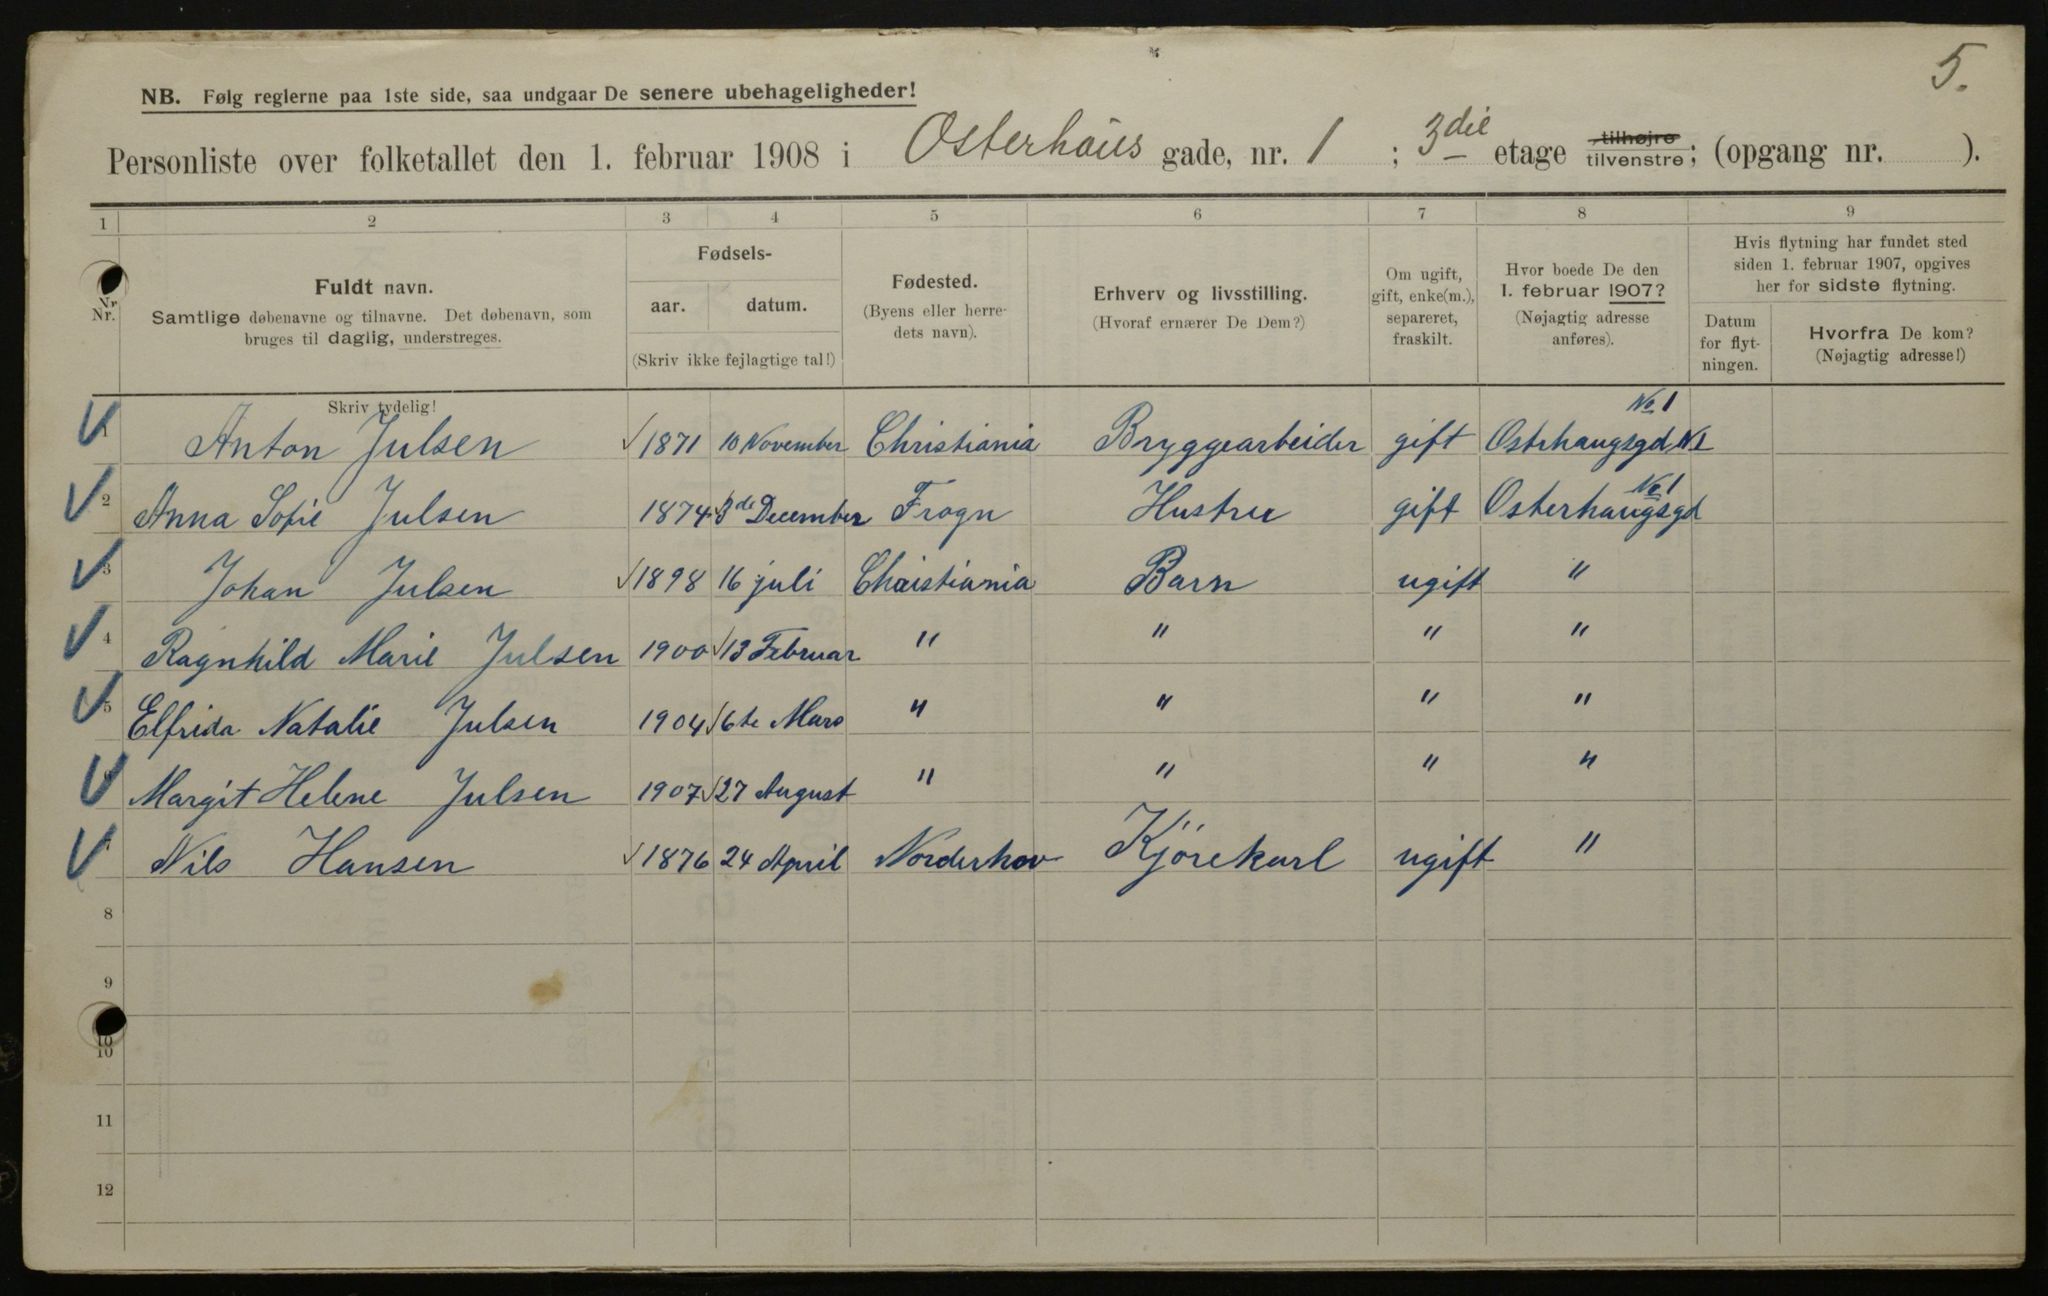 5.
NB. Følg reglerne paa 1ste side, saa undgaar De senere ubehageligheder!
Personliste over folketallet den 1. februar 1908 i Osterhaus gade, nr. 1 ; 3die etage tilhøjre tilvenstre; (opgang nr. ).
1 2 3 4 5 6 7 8 9
Nr.
Fuldt navn.
Samtlige døbenavne og tilnavne. Det døbenavn, som
bruges til daglig, understreges.
Skriv tydelig!
Fødsels-
aar. datum.
(Skriv ikke fejlagtige tal!)
Fødested.
(Byens eller herre-
dets navn).
Erhverv og livsstilling.
(Hvoraf ernærer De Dem?)
Om ugift,
gift, enke(m.),
separeret,
fraskilt.
Hvor boede De den
1. februar 1907?
(Nøjagtig adresse
anføres).
Hvis flytning har fundet sted
siden 1. februar 1907, opgives
her for sidste flytning.
Datum
for flyt-
ningen.
Hvorfra De kom?
(Nøjagtig adresse!)
No 1
1 Anton Julsen 1871 10 November Christiania Bryggearbeider gift Osterhaugsgd №1
No 1
2 Anna Sofie Julsen 1874 3de December Frogn Hustru gift Osterhaugsgd
3 Johan Julsen 1898 16 juli Christiania Barn ugift "
4 Ragnhild Marie Julsen 1900 13 Februar " " " "
5 Elfrida Natalie Julsen 1904 6te Mars " " " "
6 Margit Helene Julsen 1907 27 August " " " "
7 Nils Hansen 1876 24 April Norderhov Kjörekarl ugift "
8
9
10
11
12